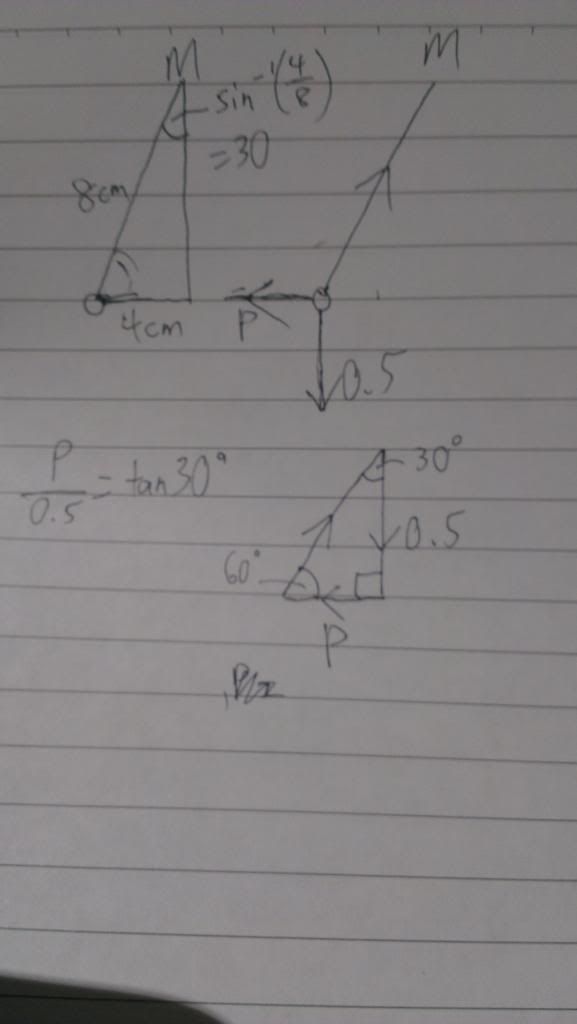 M
sin⁻¹(4/8)
= 30
8cm
4cm
M
P
0.5
P/0.5 = tan30°
30°
0.5
60°
P